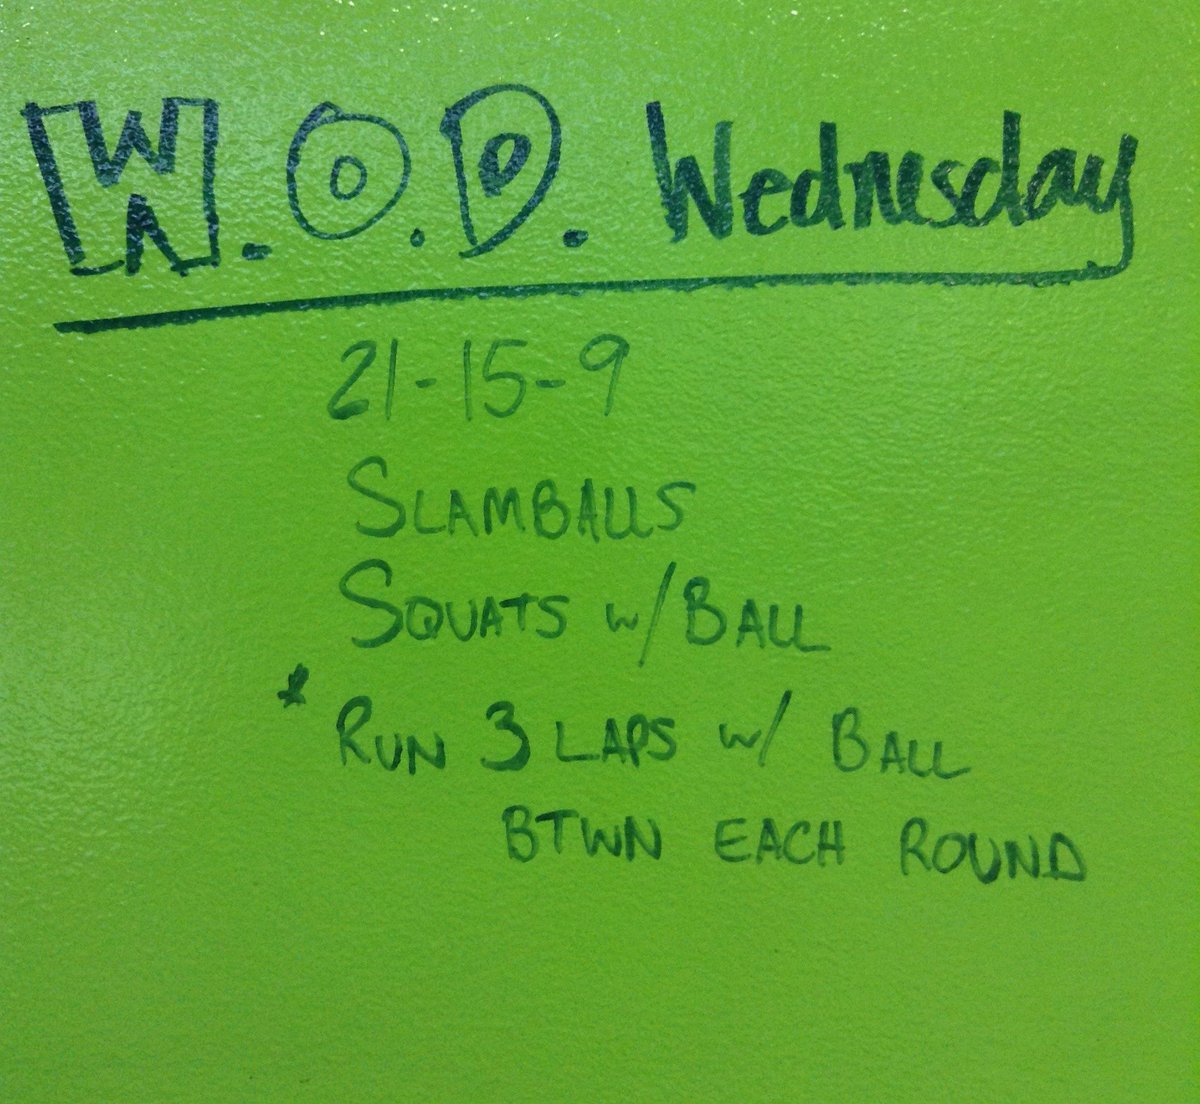 W.O.D. Wednesday
21-15-9
SLAMBALLS
SQUATS w/BALL
* RUN 3 LAPS w/ BALL
BTWN EACH ROUND